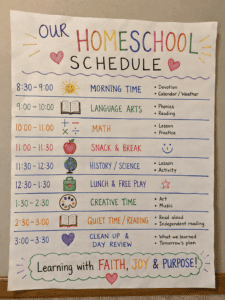 OUR HOMESCHOOL
SCHEDULE
8:30 - 9:00 MORNING TIME • Devotion
• Calendar / Weather
9:00 - 10:00 LANGUAGE ARTS • Phonics
• Reading
10:00 - 11:00 MATH • Lesson
• Practice
11:00 - 11:30 SNACK & BREAK
11:30 - 12:30 HISTORY / SCIENCE • Lesson
• Activity
12:30 - 1:30 LUNCH & FREE PLAY
1:30 - 2:30 CREATIVE TIME • Art
• Music
2:30 - 3:00 QUIET TIME / READING • Read aloud
• Independent reading
3:00 - 3:30 CLEAN UP & • What we learned
DAY REVIEW • Tomorrow's plan
Learning with FAITH, JOY & PURPOSE!